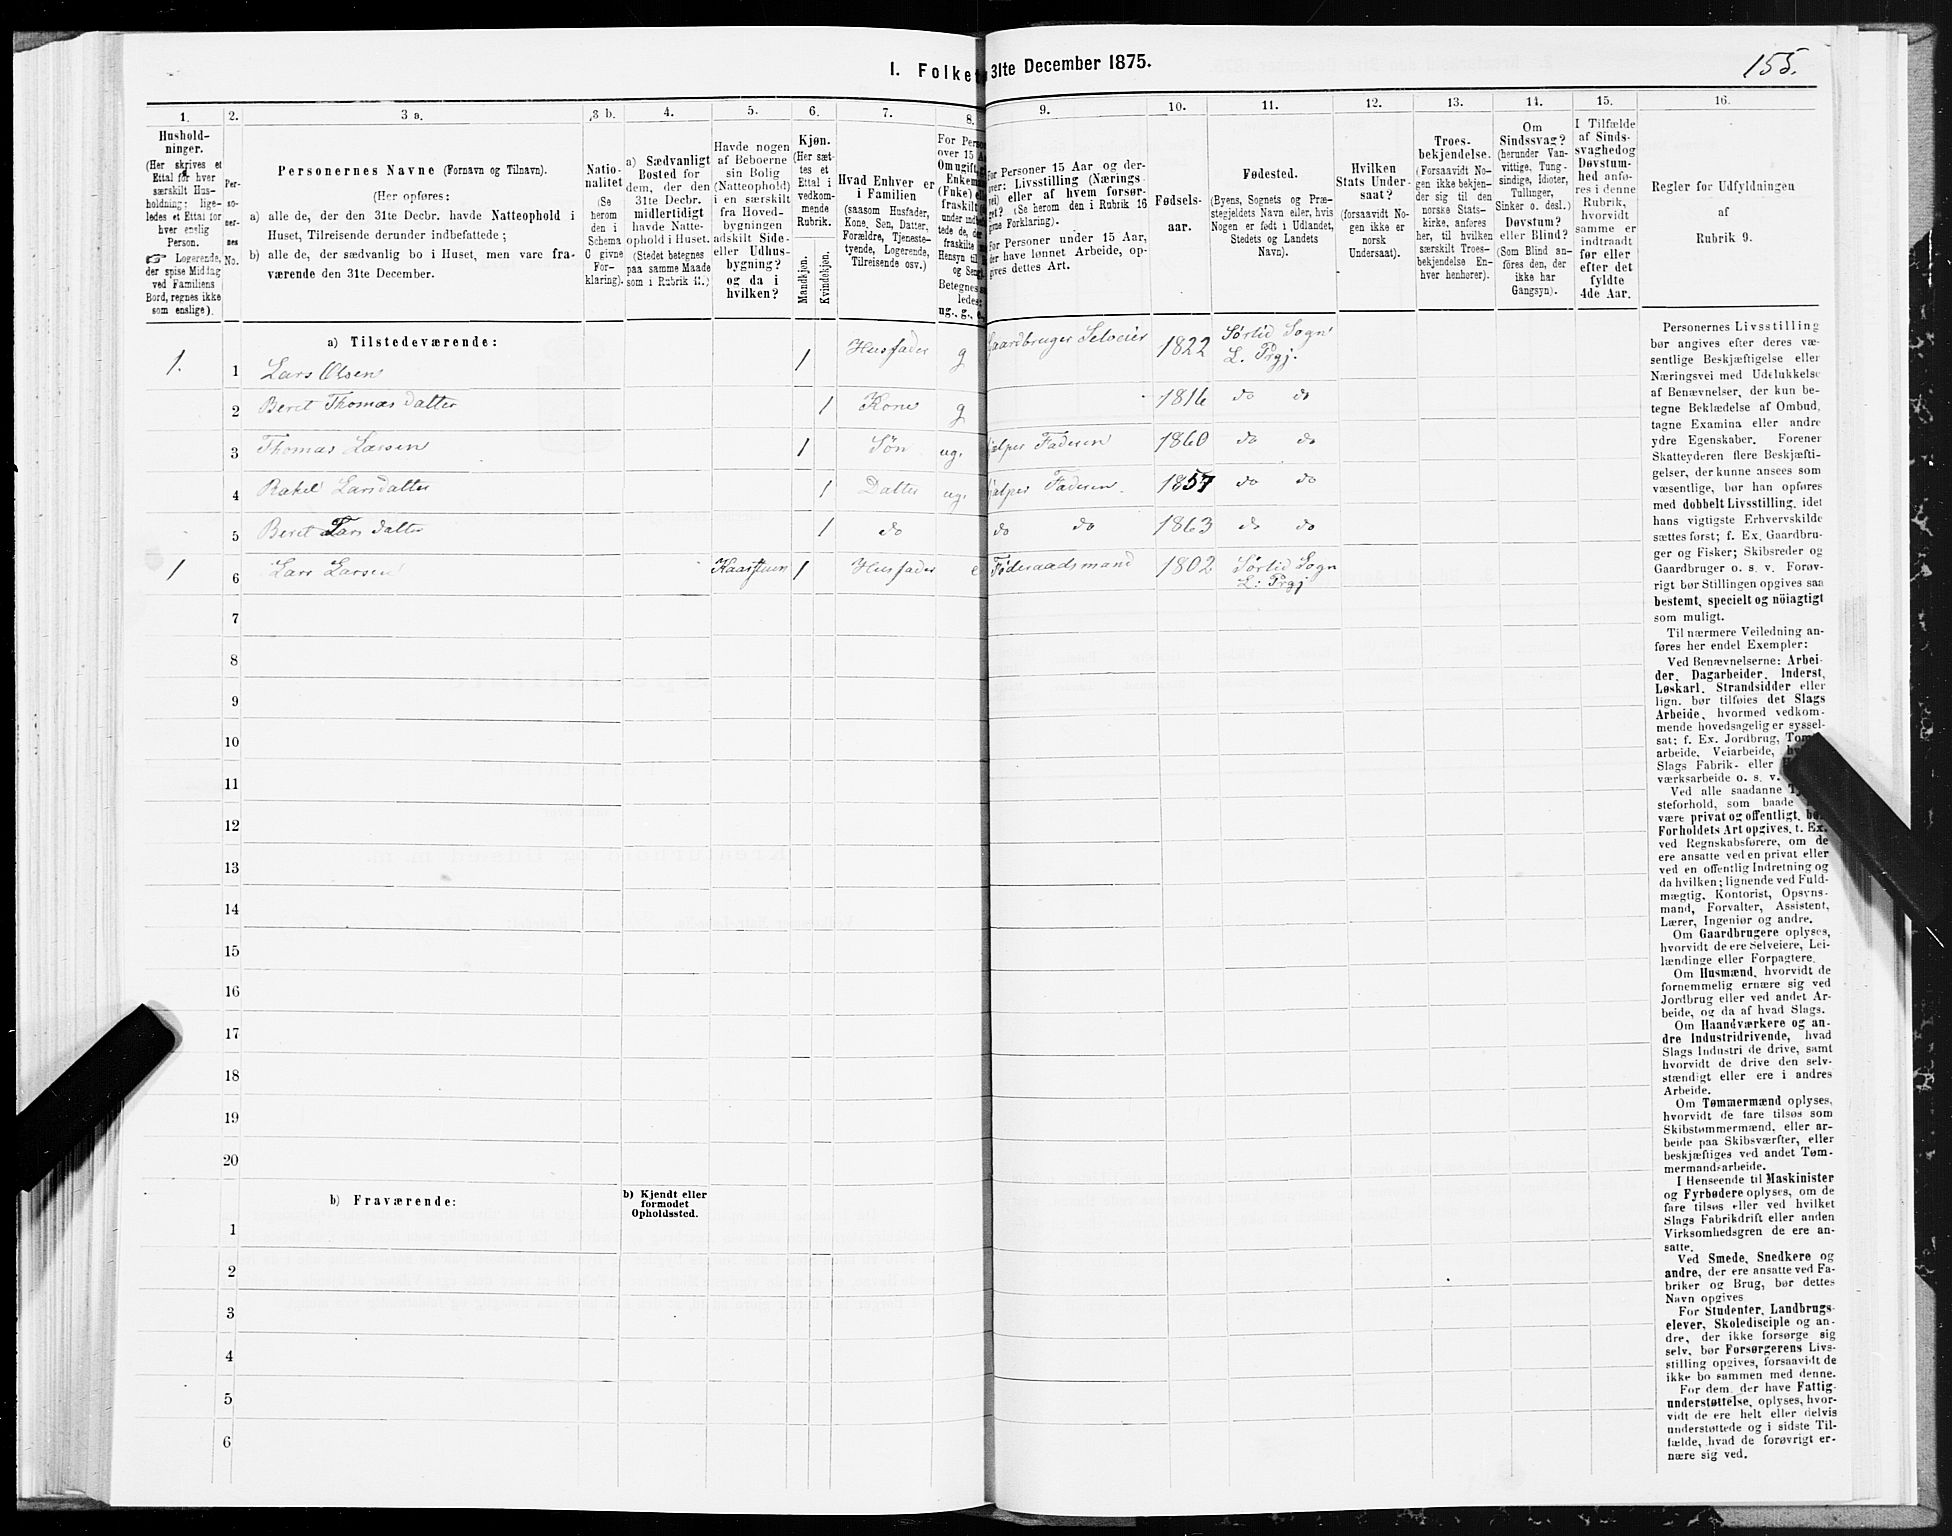 I. Folket
31te December 1875.
155.
1.
2.
3 a.
3 b.
4.
5.
6.
7.
8.
9.
10.
11.
12.
13.
14.
15.
16.
Hushold-
ninger.
(Her skrives et
Ettal for hver
særskilt Hus-
holdning; lige-
ledes et Ettal for
hver enslig
Person.
Logerende,
der spise Middag
ved Familiens
Bord, regnes ikke
som enslige).
Per-
so-
ner-
nes
No.
Personernes Navne (Fornavn og Tilnavn).
(Her opføres:
a) alle de, der den 31te Decbr. havde Natteophold i
Huset, Tilreisende derunder indbefattede;
b) alle de, der sædvanlig bo i Huset, men vare fra-
værende den 31te December.
Natio-
nalitet
(Se
herom
den i
Schema
C givne
For-
klaring).
a) Sædvanligt
Bosted for
dem, der den
31te Decbr.
midlertidigt
havde Natte-
ophold i Huset.
(Stedet betegnes
paa samme Maade
som i Rubrik 11.)
Havde nogen
af Beboerne
sin Bolig
(Natteophold)
i en særskilt
fra Hoved-
bygningen
adskilt Side-
eller Udhus-
bygning?
og da i
hvilken?
Kjøn.
(Her sæt-
tes et
Ettal i
vedkom-
mende
Rubrik.
Mandkjøn.
Kvindekjøn.
Hvad Enhver er
i Familien
(saasom Husfader,
Kone, Søn, Datter,
Forældre, Tjeneste-
tyende, Logerende,
Tilreisende osv.)
For Pers
over 15 A
Om ugift,
Enkem
(Fuke) e
fraskilt
under indb
tede de, d
fraskilte
Hensyn til
og Sen
Betegnes
ledes:
ug., g., e.
For Personer 15 Aar og der-
over: Livsstilling (Nærings-
vei) eller af hvem forsør-
get? (Se herom den i Rubrik 16
givne Forklaring).
For Personer under 15 Aar,
der have lønnet Arbeide, op-
gives dettes Art.
Fødsels-
aar.
Fødested.
(Byens, Sognets og Præ-
stegjeldets Navn eller, hvis
Nogen er født i Udlandet,
Stedets og Landets
Navn).
Hvilken
Stats Under-
saat?
(forsaavidt No-
gen ikke er
norsk
Undersaat).
Troes-
bekjendelse.
(Forsaavidt No-
gen ikke bekjen-
der sig til den
norske Stats-
kirke, anføres
her, til hvilken
særskilt Troes-
bekjendelse En-
hver henhører).
Om
Sindssvag?
(herunder Van-
vittige, Tung-
sindige, Idioter,
Tullinger,
Sinker o. desl.)
Døvstum?
eller Blind?
(Som Blind an-
føres den, der
ikke har
Gangsyn).
I Tilfælde
af Sinds-
svaghed og
Døvstum-
hed anfø-
res i denne
Rubrik,
hvorvidt
samme er
indtraadt
før eller
efter det
fyldte
4de Aar.
Regler for Udfyldningen
af
Rubrik 9.
a) Tilstedeværende:
1. 1 Lars Olsen 1 Husfader g Gaardbruger Selveier 1822 Sørlid Sogn
L. Prgj.
2 Beret Thomasdatter 1 Kone g 1816 do do
3 Thomas Larsen 1 Søn ug. hjælper Faderen 1860 do do
4 Rakel Larsdatter 1 Datter ug. hjælper Faderen 1857 do do
5 Beret Larsdatter 1 do do do 1863 do do
1 6 Lars Larsen 1 Husfader e Føderaadsmand 1802 Sørlid Sogn
L: Prgj
7
8
9
10
11
12
13
14
15
16
17
18
19
20
b) Fraværende:
b) Kjendt eller
formodet
Opholdssted.
1
2
3
4
5
6
Personernes Livsstilling
bør angives efter deres væ-
sentlige Beskjæftigelse eller
Næringsvei med Udelukkelse
af Benævnelser, der kun be-
tegne Beklædelse af Ombud,
tagne Examina eller andre
ydre Egenskaber. Forener
Skatteyderen flere Beskjæfti-
gelser, der kunne ansees som
væsentlige, bør han opføres
med dobbelt Livsstilling, idet
hans vigtigste Erhvervskilde
sættes først; f. Ex. Gaardbru-
ger og Fisker; Skibsreder og
Gaardbruger o. s. v. Forøv-
rigt bør Stillingen opgives saa
bestemt, specielt og nöiagtigt
som muligt.
Til nærmere Veiledning an-
føres her endel Exempler:
Ved Benævnelserne: Arbei-
der, Dagarbeider, Inderst,
Løskarl, Strandsidder eller
lign. bør tilføies det Slags
Arbeide, hvormed vedkom-
mende hovedsagelig er syssel-
sat; f. Ex. Jordbrug, Tøm
arbeide, Veiarbeide,
Slags Fabrik- eller
værksarbeide o. s. v.
Ved alle saadanne
steforhold, som baade
være privat og offentligt,
Forholdets Art opgives, t. Ex.
ved Regnskabsførere, om de
ere ansatte ved en privat eller
ved en offentlig Indretning og
da hvilken; lignende ved Fuld-
mægtig, Kontorist, Opsyns-
mand, Forvalter, Assistent,
Lærer, Ingeniør og andre.
Om Gaardbrugere oplyses,
hvorvidt de ere Selveiere, Lei-
lændinge eller Forpagtere.
Om Husmænd, hvorvidt de
fornemmelig ernære sig ved
Jordbrug eller ved andet Ar-
beide, og da af hvad Slags.
Om Haandværkere og an-
dre Industridrivende, hvad
Slags Industri de drive, samt
hvorvidt de drive den selv-
stændigt eller ere i andres
Arbeide.
Om Tømmermænd oplyses,
hvorvidt de fare tilsøs som
Skibstømmermænd, eller ar-
beide paa Skibsværfter, eller
beskjæftiges ved andet Tøm-
mermandsarbeide.
I Henseende til Maskinister
og Fyrbødere oplyses, om de
fare tilsøs eller ved hvilket
Slags Fabrikdrift eller anden
Virksomhedsgren de ere an-
satte.
Ved Smede, Snedkere og
andre, der ere ansatte ved Fa-
briker og Brug, bør dettes
Navn opgives.
For Studenter, Landbrugs-
elever, Skoledisciple og an-
dre, der ikke forsørge sig
selv, bør Forsørgerens Livs-
stilling opgives, forsaavidt de
ikke bo sammen med denne.
For dem, der have Fattig-
understøttelse, oplyses, hvor-
vidt de ere helt eller delvis
understøttede og i sidste Til-
fælde, hvad de forøvrigt er-
nære sig ved.